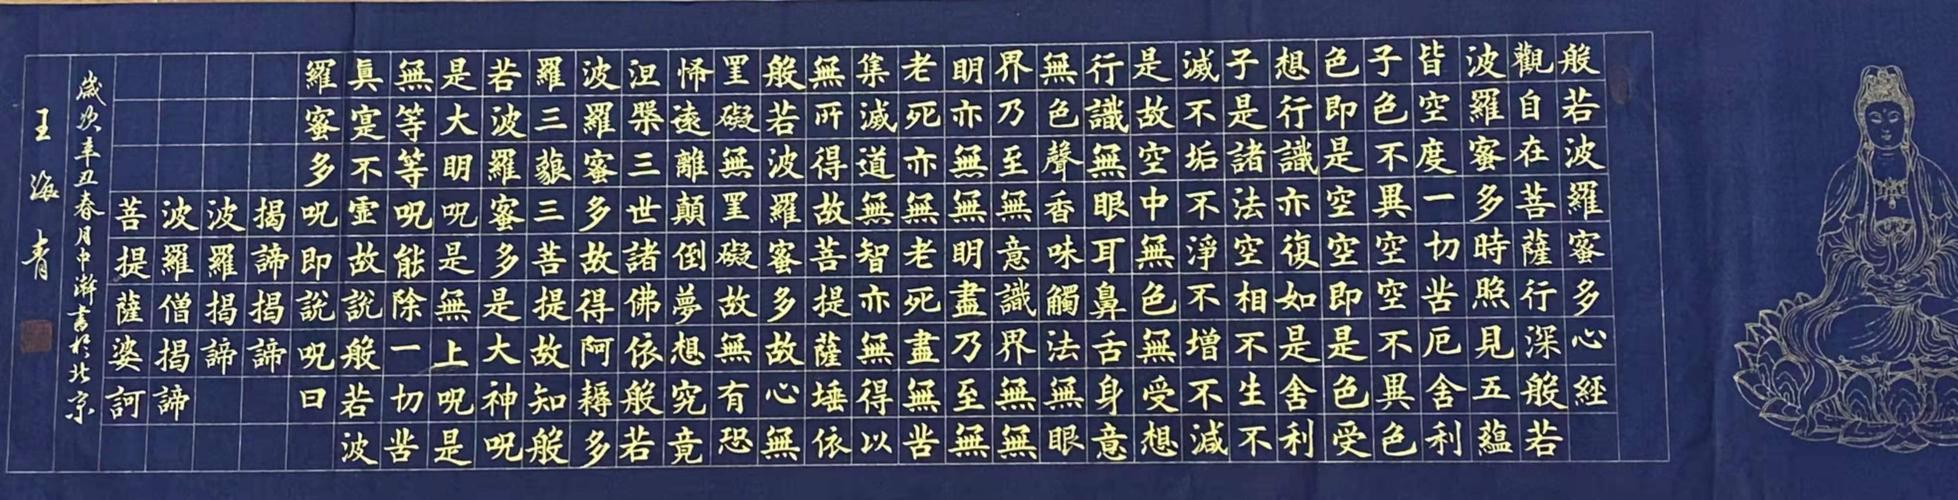 般若波羅蜜多心經
觀自在菩薩行深般若
波羅蜜多時照見五蘊
皆空度一切苦厄舍利
子色不異空空不異色
色即是空空即是色受
想行識亦復如是舍利
子是諸法空相不生不
滅不垢不淨不增不減
是故空中無色無受想
行識無眼耳鼻舌身意
無色聲香味觸法無眼
界乃至無意識界無無
明亦無無明盡乃至無
老死亦無老死盡無苦
集滅道無智亦無得以
無所得故菩提薩埵依
般若波羅蜜多故心無
罣礙無罣礙故無有恐
怖遠離顛倒夢想究竟
涅槃三世諸佛依般若
波羅蜜多故得阿耨多
羅三藐三菩提故知般
若波羅蜜多是大神呪
是大明呪是無上呪是
無等等呪能除一切苦
眞寔不虛故說般若波
羅蜜多呪即說呪曰
揭諦揭諦
波羅揭諦
波羅僧揭諦
菩提薩婆訶
歲次辛丑春月中澣書於北京
王海青